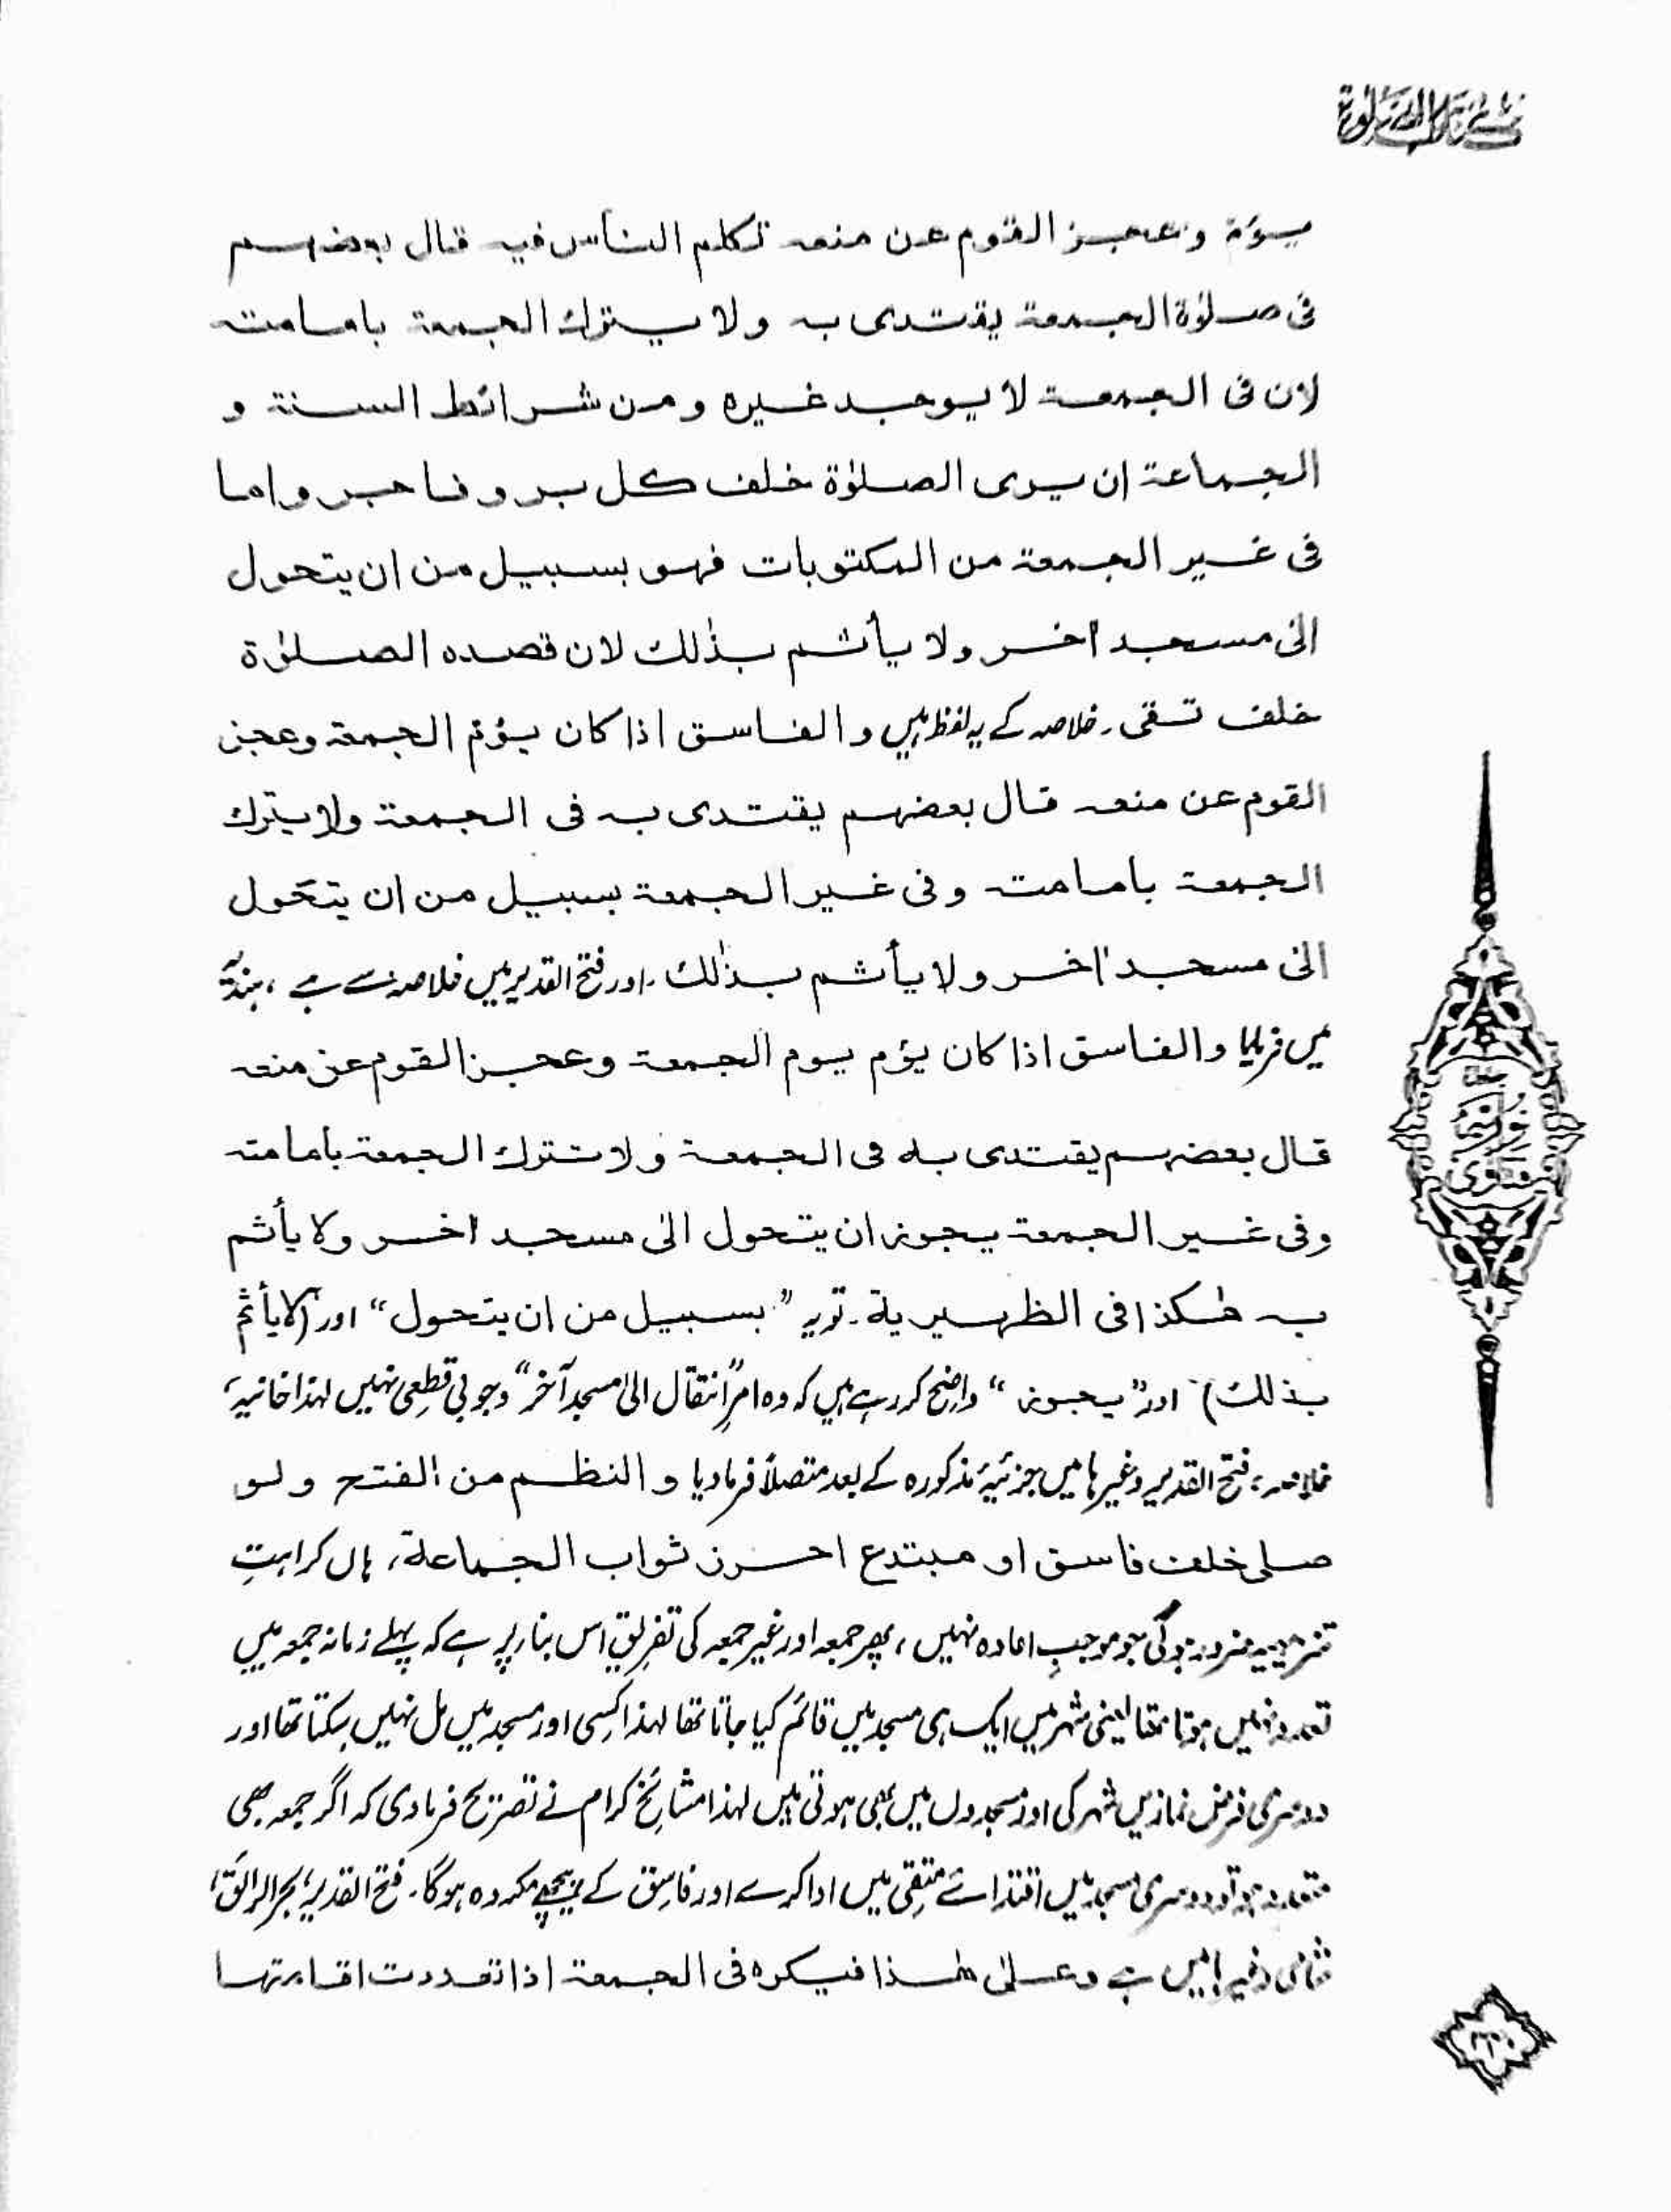 كتاب الصلوة
يؤم وعجز القوم عن منعه تكلم الناس فيه قال بعضهم
فى صلوٰة الجمعة يقتدى به ولا يترك الجمعة بامامته
لان فى الجمعة لا يوجد غيره ومن شرائط السنة و
الجماعة ان يرى الصلوٰة خلف كل بر و فاجر واما
فى غير الجمعة من المكتوبات فهو بسبيل من ان يتحول
الىٰ مسجد اٰخر ولا يأثم بذٰلك لان قصده الصلوٰة
خلف تقى۔ خلاصہ کے یہ لفظ ہیں والفاسق اذا كان يؤم الجمعة وعجز
القوم عن منعه قال بعضهم يقتدى به فى الجمعة ولا يترك
الجمعة بامامته وفى غير الجمعة بسبيل من ان يتحول
الىٰ مسجد اٰخر ولا يأثم بذٰلك۔ اور فتح القدیر میں خلاصہ سے ہے ، ہندیہ
میں فرمایا والفاسق اذا كان يؤم يوم الجمعة وعجز القوم عن منعه
قال بعضهم يقتدى به فى الجمعة ولا تترك الجمعة بامامته
وفى غير الجمعة يجوز ان يتحول الىٰ مسجد اٰخر ولا يأثم
به هٰكذا فى الظهيرية۔ تو یہ ”بسبيل من ان يتحول“ اور (لا يأثم
بذلك) اور ”يجوز“ واضح کر رہے ہیں کہ وہ امرِ ”انتقال الیٰ مسجد آخر“ وجوبی قطعی نہیں لہٰذا خانیہ،
خلاصہ، فتح القدیر وغیرہا میں جزئیۂ مذکورہ کے بعد متصلاً فرما دیا والنظم من الفتح ولو
صلى خلف فاسق او مبتدع احرز ثواب الجماعة، ہاں کراہتِ
تنزیہیہ ضرور ہوگی جو موجبِ اعادہ نہیں ، پھر جمعہ اور غیر جمعہ کی تفریق اس بنا پر ہے کہ پہلے زمانہ جمعہ میں
تعدد نہیں ہوتا تھا یعنی شہر میں ایک ہی مسجد میں قائم کیا جاتا تھا لہذا کسی اور مسجد میں مل نہیں سکتا تھا اور
دوسری فرض نمازیں شہر کی اور مسجدوں میں بھی ہوتی ہیں لہذا مشائخ کرام نے تصریح فرما دی کہ اگر جمعہ بھی
متعدد ہو تو دوسری مسجد میں اقتدائے متقی میں ادا کرے اور فاسق کے پیچھے مکروہ ہوگا۔ فتح القدیر، بحر الرائق،
شامی وغیرہا میں ہے وعلىٰ هٰذا فيكره فى الجمعة اذا تعددت اقامتها
فتاوىٰ نوریہ